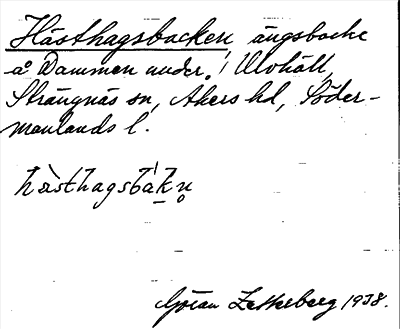 Hästhagsbacken, ängsbacke
å Dammen under Ulvhäll,
Strängnäs sn, Åkers hd, Söder-
manlands l.
hàsthagsbák̠n̥
Göran Zetterberg 1938.